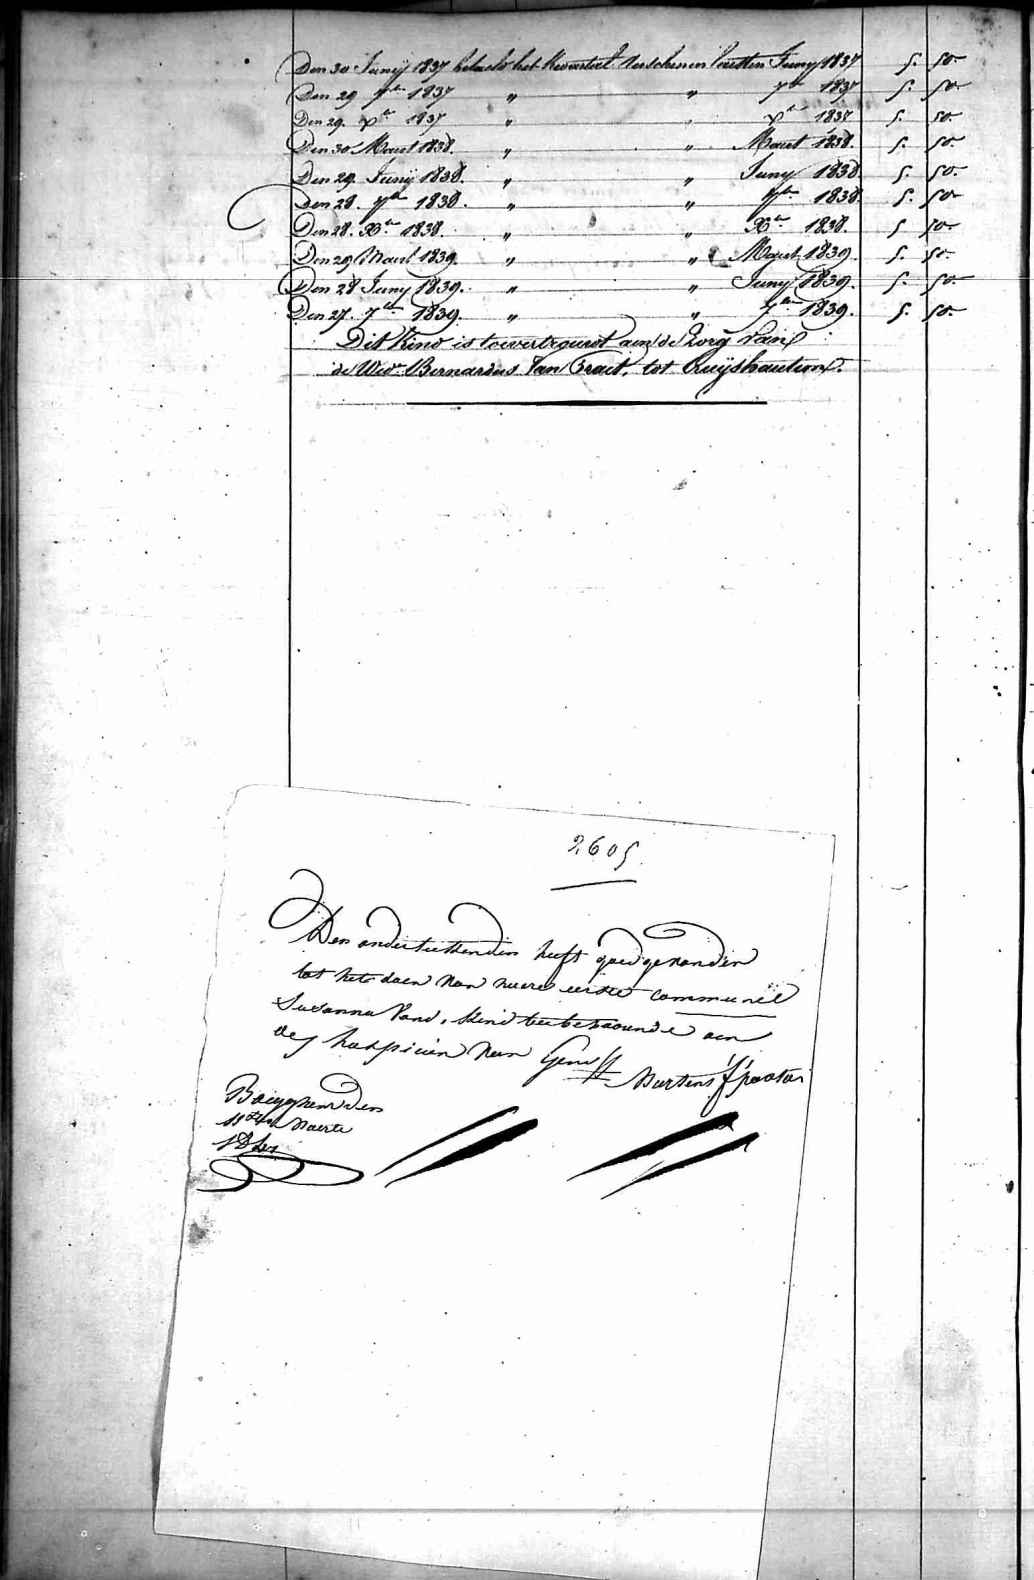 Den 30 Junij 1837 betaelt het kwartael verschenen lesten Juny 1837 5. 50
Den 29 7ber 1837 " " 7ber 1837 5. 50
Den 29. Xber 1837 " " Xber 1837 5. 50
Den 30 Maert 1838. " " Maert 1838. 5. 50.
Den 29 Junij 1838. " " Juny 1838 5. 50.
Den 28. 7ber 1838. " " 7ber 1838. 5. 50
Den 28. Xber 1838. " " Xber 1838. 5 50
Den 29 Maert 1839. " " Maert 1839. 5. 50.
Den 28 Juny 1839. " " Juny 1839. 5. 50.
Den 27. 7ber 1839. " " 7ber 1839. 5. 50.
Dit Kind is toevertrouwt aen de Zorg van
de Wed. Bernardus Van tot Cruijshautem.
2605.
Den onderteekenden heeft goedgevonden
tot het doen van huere eerste communie
Susanna Vand, kind toebehoorende aen
de hospicien van Gend
Martens pastor
den
Maerte